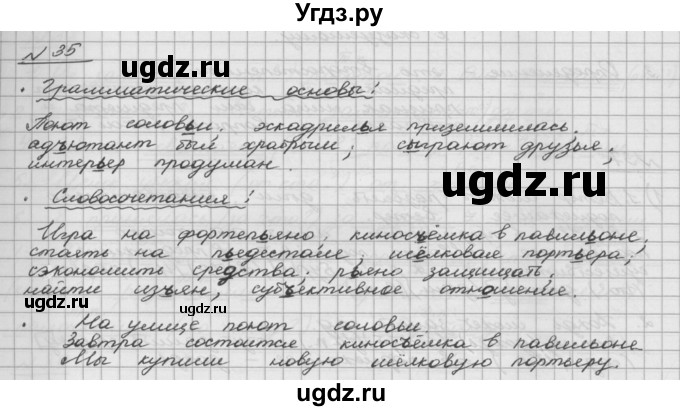 Угдз.ру
N 35
. Грамматические основы!
Поют соловьи, эскадрилья приземлилась,
адъютант был храбрым; сыграют друзья;
интерьер продуман.
. Словосочетания!
Игра на фортепьяно, киносъёмка в павильоне,
стоять на пьедестале, шёлковая портьера,
сэкономить средства, рьяно защищать,
найти изъян, субъективное отношение.
. На улице поют соловьи
Завтра состоится киносъёмка в павильоне
Мы купили новую шёлковую портьеру.
ugdz.ru
ugdz.ru
ugdz.ru
ugdz.ru
ugdz.ru
ugdz.ru
ugdz.ru
ugdz.ru